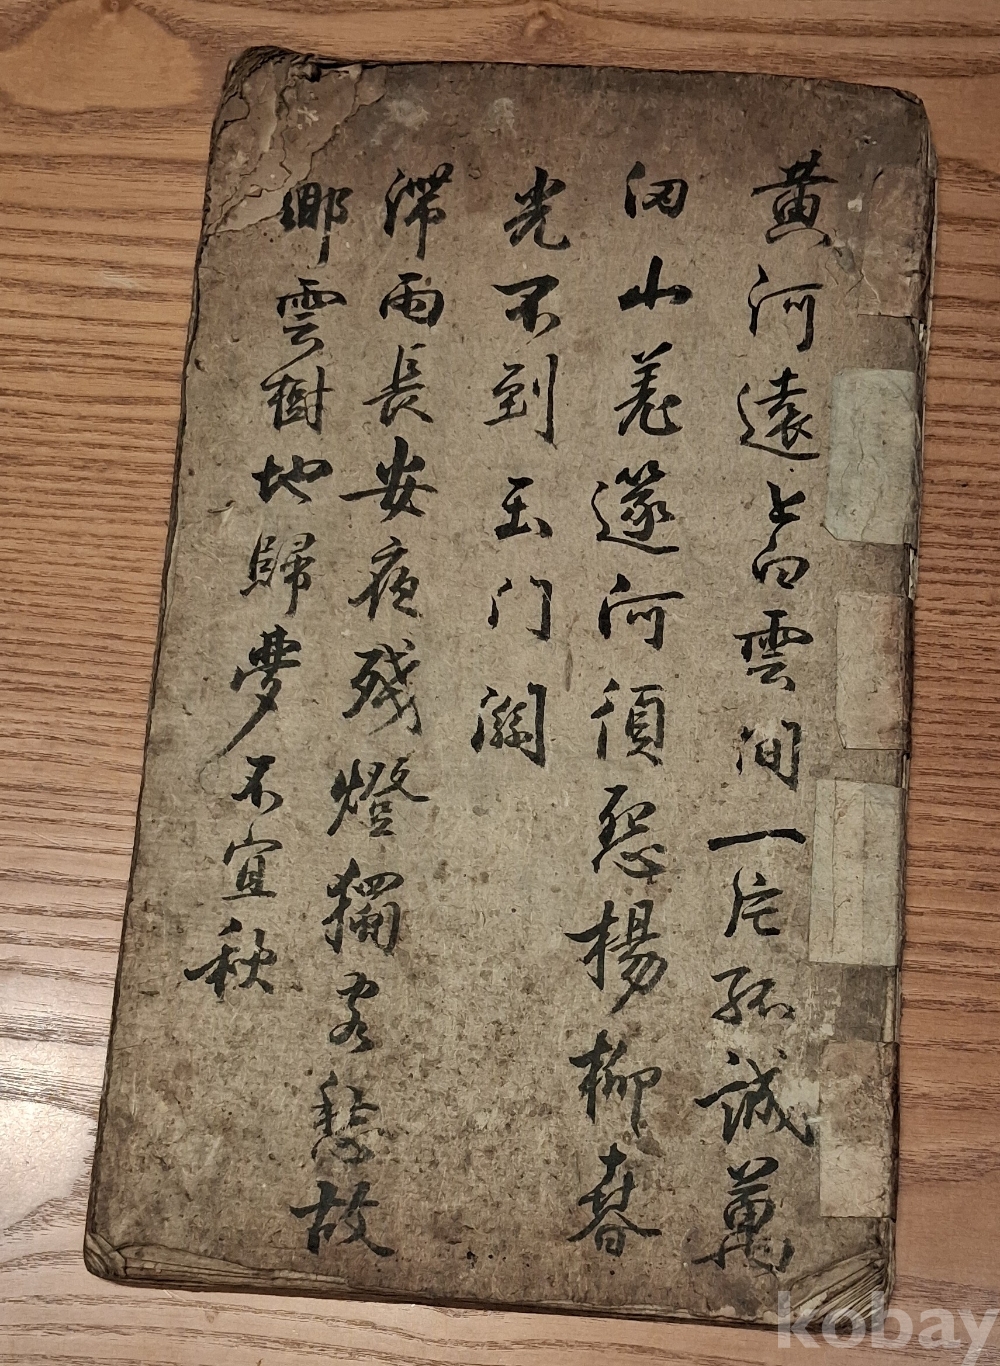 黄河遠上白雲间一片孤誠萬
仞山羌邃河須怨楊柳春
光不到玉门關
滞雨長安夜殘燈獨客愁故
鄕雲樹地歸夢不宜秋
kobay